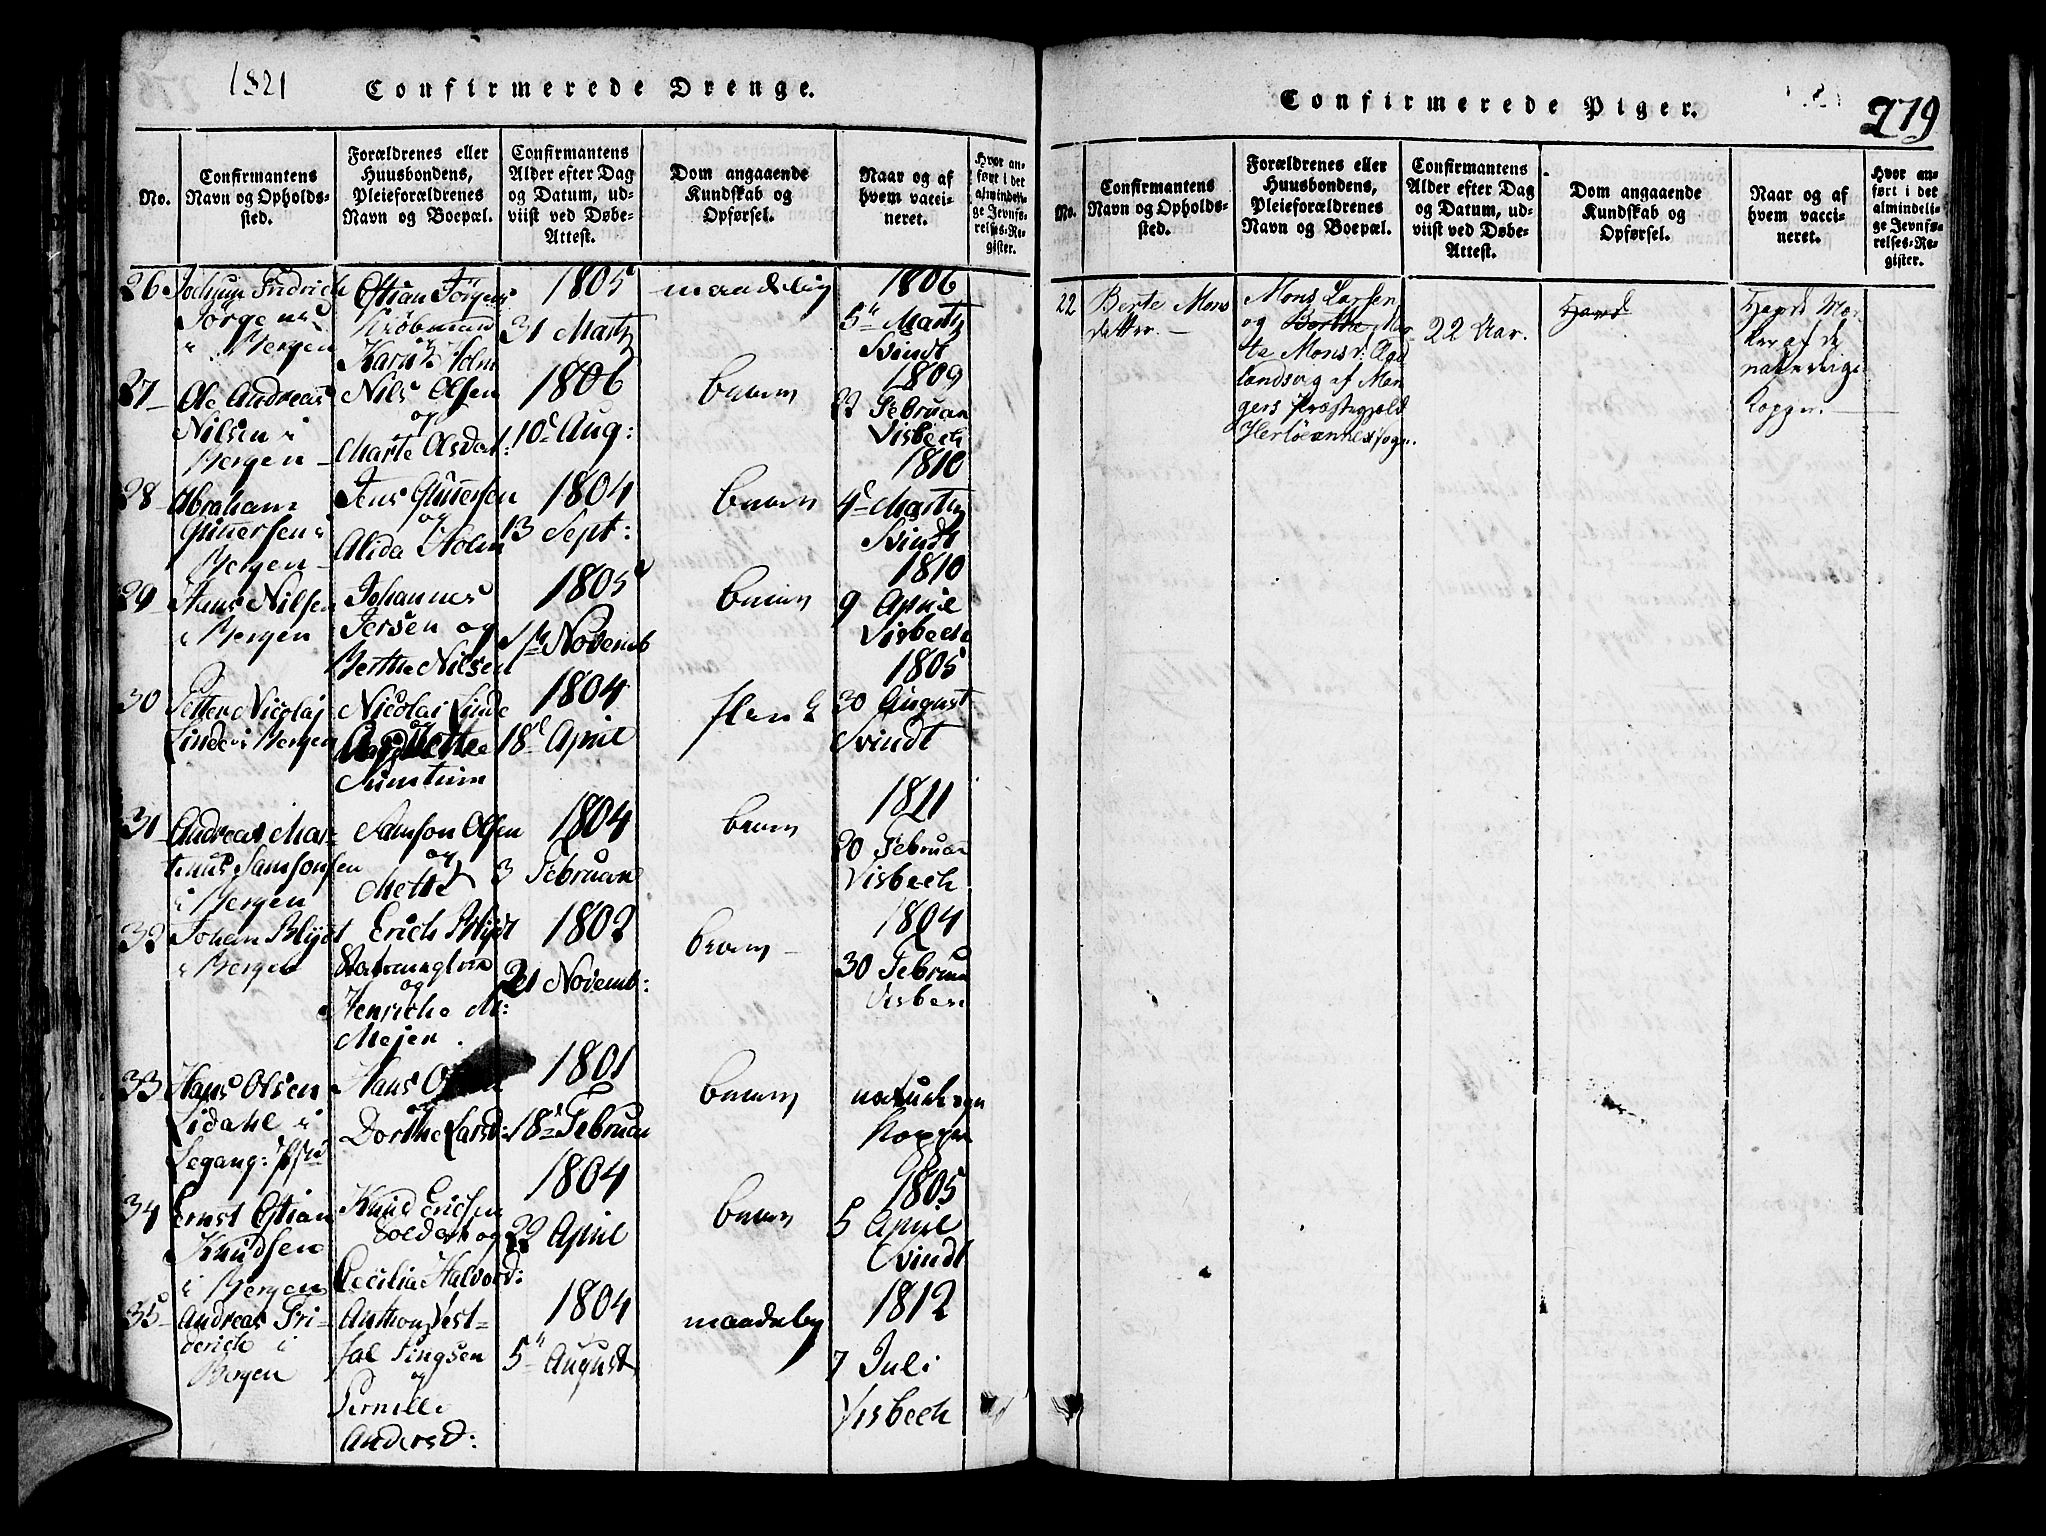 1821
Confirmerede Drenge.
No.
Confirmantens
Navn og Opholds-
sted.
Forældrenes eller
Huusbondens,
Pleieforældrenes
Navn og Boepæl.
Confirmantens
Alder efter Dag
og Datum, ud-
viist ved Døbe-
Attest.
Dom angaaende
Kundskab og
Opførsel.
Naar og af
hvem vacci-
neret.
Hvor an-
ført i det
almindeli-
ge Jevnfø-
relses-Re-
gister.
26 Jochum Fridrich
Jørgens
i Bergen
Cstian Jørgens
Krøbmand
Karen Holm
1805
31 Martz
maadelig
1806
5 Martz
Svindt
27 Ole Andreas
Nilsen i
Bergen
Nils Olsen
og
Marte Olsdat:
1806
10 Aug:
1809
22 Februar
Visbech
28 Abraham
Gunersen i
Bergen
Jens Gunersen
og
Alida Holm
1804
13 Sept:
1810
4 Martz
Svindt
29 Hans Nilsen
i Bergen
Johannes
Jersen og
Berthe Nilsen
1805
Novemb
1810
9 April
Visbech
30 Petter Nicolaj
Linde i Bergen
Nicolai Linde
og
Sumtum
1804
18 April
1805
30 August
Svindt
31 Andreas Mar-
tinus Samsonsen
i Bergen
Samson Olsen
og
Mette
1804
3 Februar
1811
20 Februar
Visbech
32 Johan Blydt
i Bergen
Erich Blydt
og
Henriche M:
Mejer.
1802
21 Novemb:
1804
30 Februar
Visbech
33 Hans Olsen
Lidahl i
Hans
Dorthe Larsd:
1801
18 Februar
naturlige
Kopper
34 Ernst Cstian
Knudsen
i Bergen
Knud Ericsen
Soldat og
Cecilia Halvord:
1804
22 April
1805
5 April
Svindt
35 Andreas Fri-
derich i
Bergen
Anthon Vest-
fal Singsen
og
Pernille
Andersd:
1804
5 August
maadelig
1812
7 Juli
Visbech
Confirmerede Piger.
279
No.
Confirmantens
Navn og Opholds-
sted.
Forældrenes eller
Huusbondens,
Pleieforældrenes
Navn og Boepæl.
Confirmantens
Alder efter Dag
og Datum, ud-
viist ved Døbe-
Attest.
Dom angaaende
Kundskab og
Opførsel.
Naar og af
hvem vacci-
neret.
Hvor an-
ført i det
almindeli-
ge Jevnfø-
relses-Re-
gister.
22 Berte Mons
datter.
Mons Larsen
og Berthe Mar-
te Monsd: Aga
landsvig af Man
gers Præstegjeld
Herløe annex sogn.
22 Aar.
Havd
Havde Mær
ker af de
naturlige
Kopper.